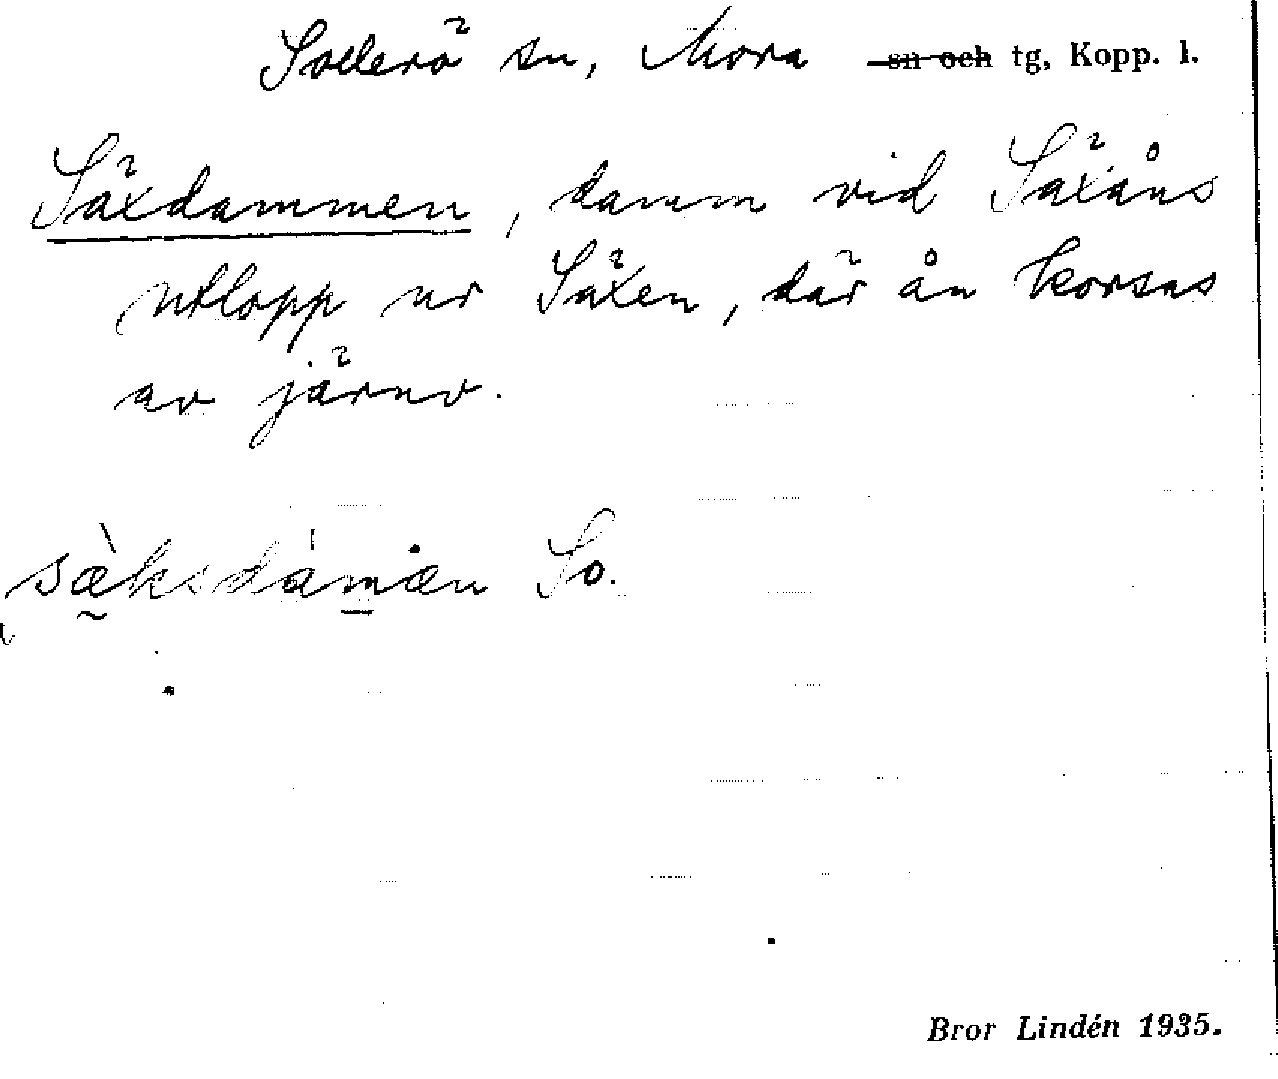 Sollerö sn, Mora sn och tg, Kopp. l.
Säxdammen, damm vid Säxåns
utlopp ur Säxen, där ån korsas
av järnv.
sæ̀ksdámæn So.
Bror Lindén 1935.